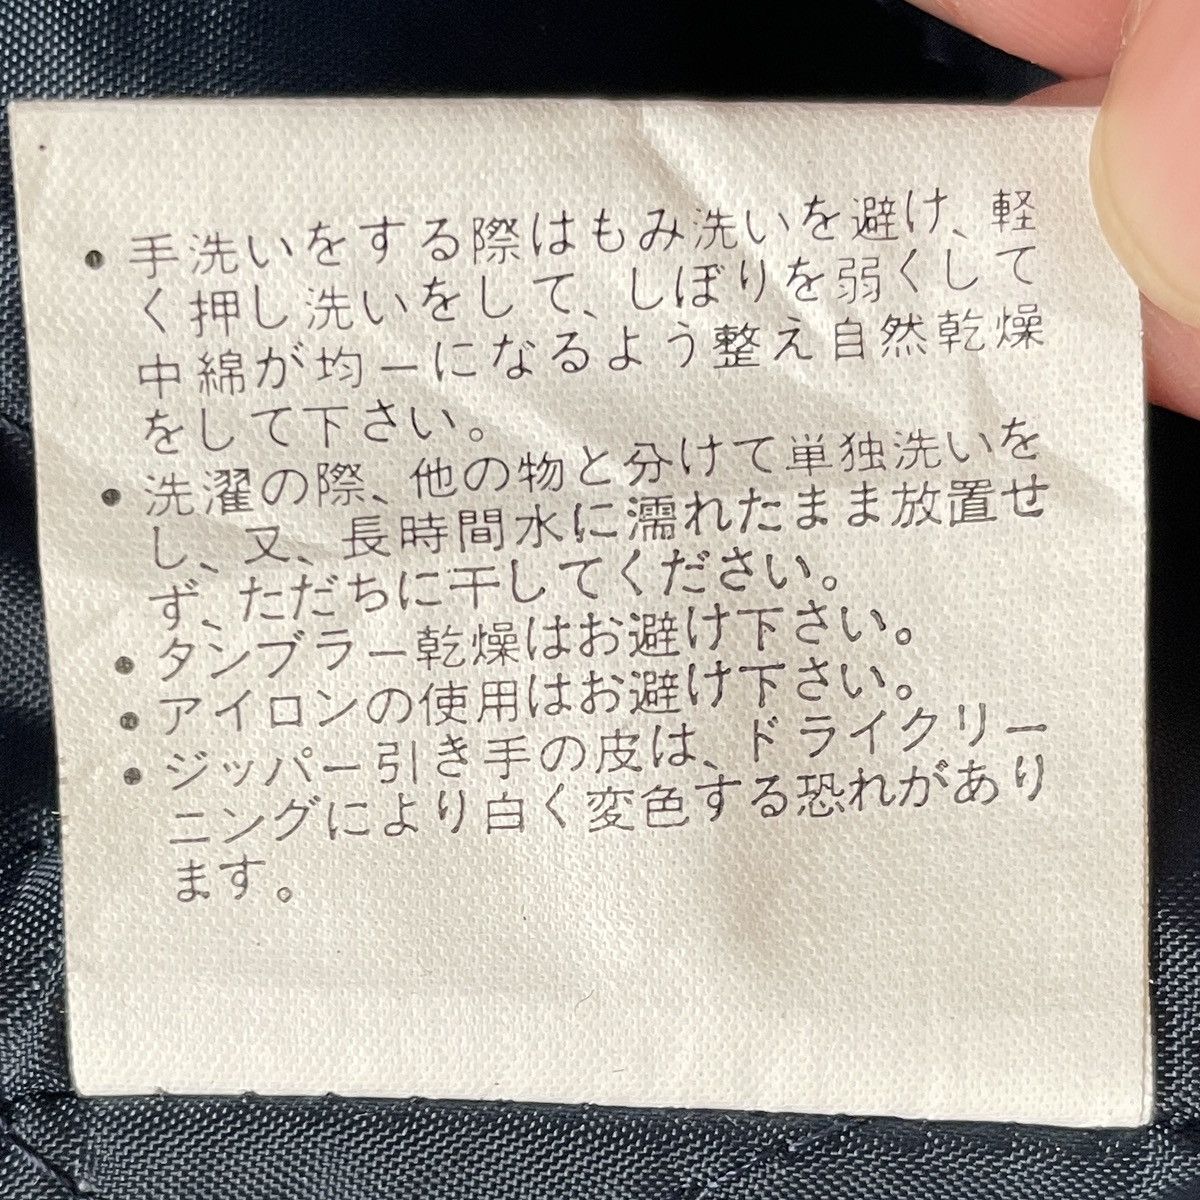 ・手洗いをする際はもみ洗いを避け、軽
く押し洗いをして、しぼりを弱くして
中綿が均一になるよう整え自然乾燥
をして下さい。
・洗濯の際、他の物と分けて単独洗いを
し、又、長時間水に濡れたまま放置せ
ず、ただちに干してください。
・タンブラー乾燥はお避け下さい。
・アイロンの使用はお避け下さい。
・ジッパー引き手の皮は、ドライクリー
ニングにより白く変色する恐れがあり
ます。